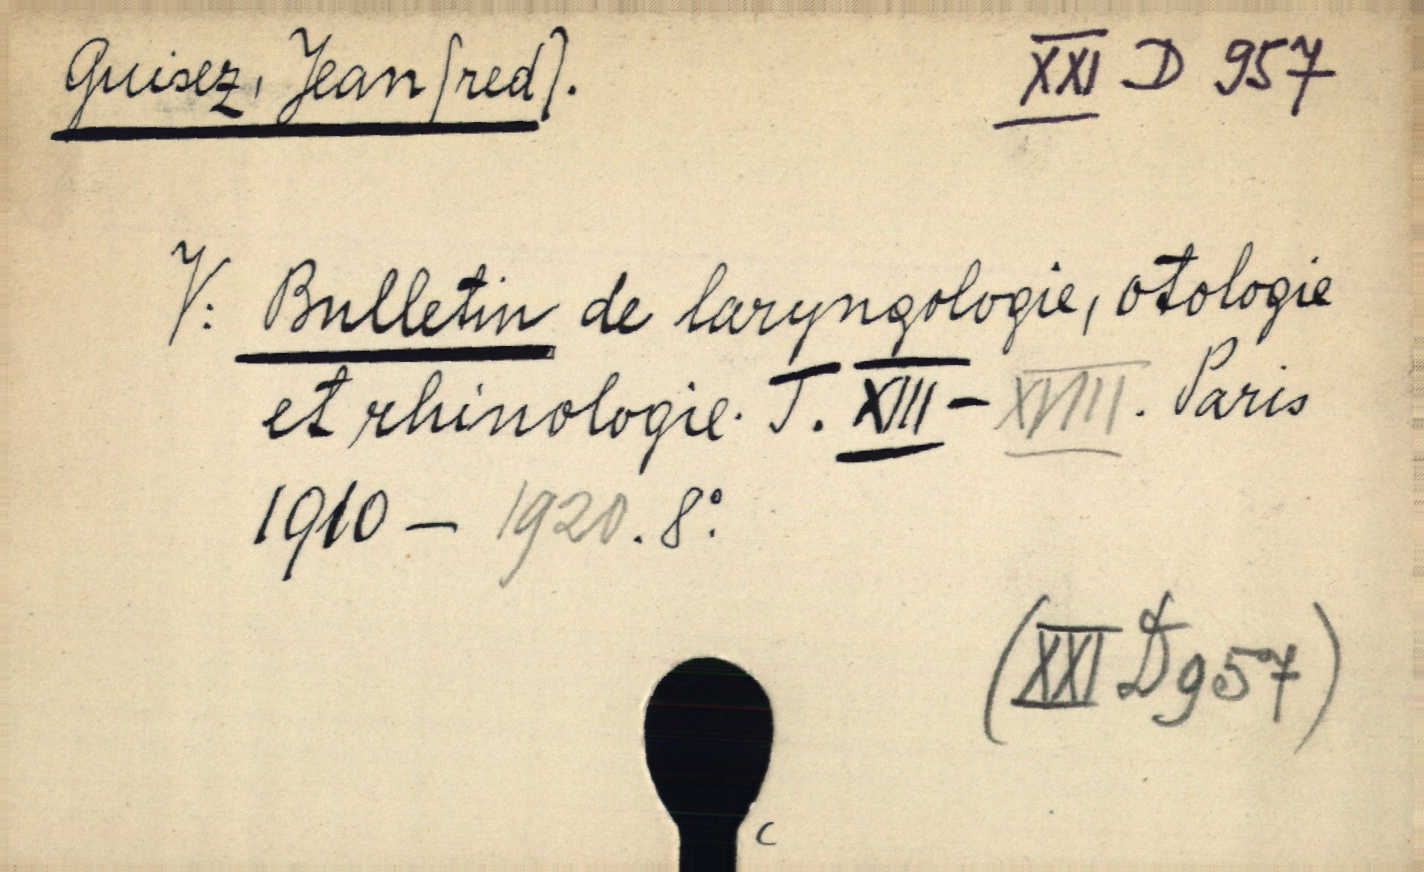 Guisez, Jean [red].
XXI D 957
V: Bulletin de laryngologie, otologie
et rhinologie. T. XIII - XVIII. Paris
1910 - 1920. 8°.
(XXI D 957)
C